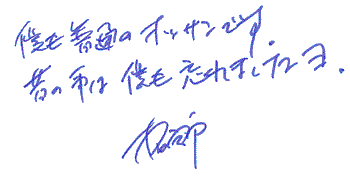 僕も普通のオッサンです。
昔の事は僕も忘れましたヨ.